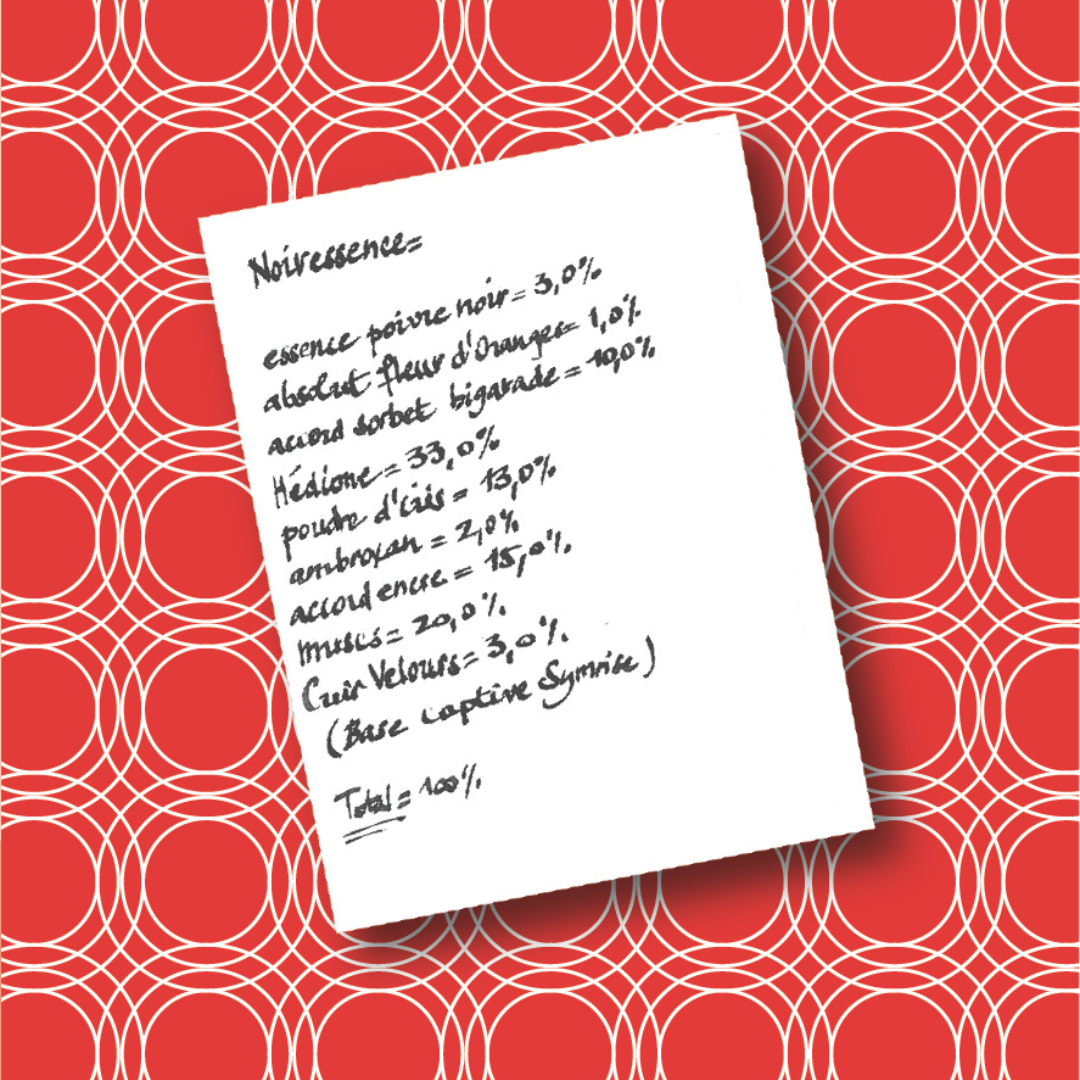 Noiressence=
essence poivre noir = 3,0%
absolut fleur d'Oranger= 1,0%
accord sorbet bigarade = 10,0%
Hédione = 33,0%
poudre d'iris = 13,0%
ambroxan = 2,0%
accord encre = 15,0%
muscs = 20,0%
Cuir Velours= 3,0%
(Base captive Symrise)
Total = 100%